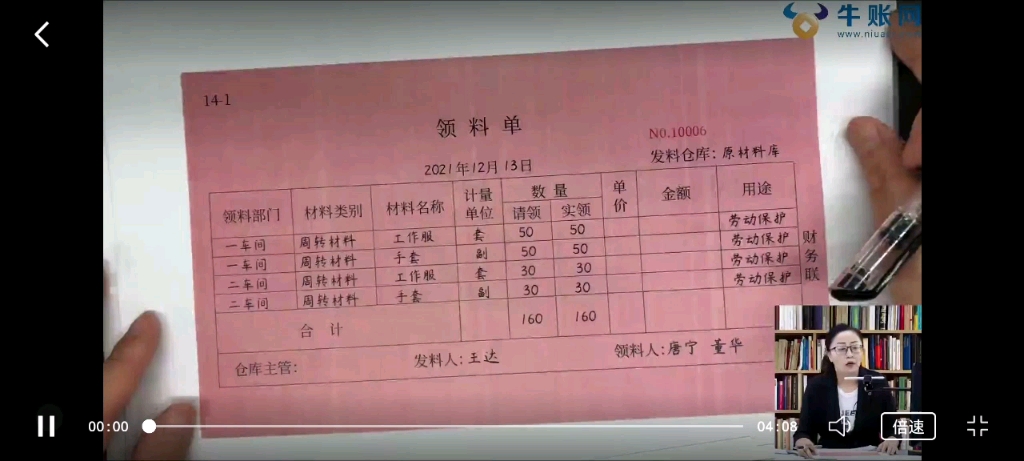 牛账网
www.niua
14-1
领料单
NO.10006
2021年12月13日
发料仓库：原材料库
领料部门 材料类别 材料名称 计量单位 数量 单价 金额 用途
请领 实领
一车间 周转材料 工作服 套 50 50 劳动保护
一车间 周转材料 手套 副 50 50 劳动保护
二车间 周转材料 工作服 套 30 30 劳动保护
二车间 周转材料 手套 副 30 30 劳动保护
合计 160 160
财务联
仓库主管： 发料人：王达 领料人：唐宁 董华
00:00
04:08
倍速